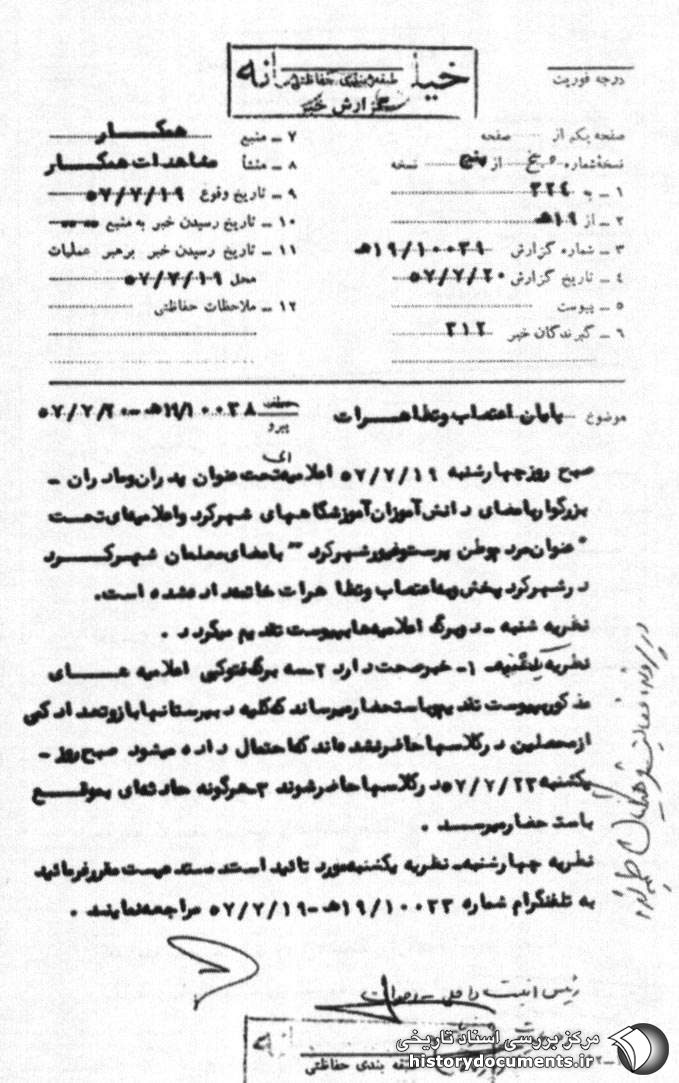 خیلی محرمانه
طبقه‌بندی حفاظتی
گزارش خبر
درجه فوریت
صفحه یکم از صفحه
نسخهٔ شماره از پنج نسخه
۱ ـ به ۳۲۴
۲ ـ از ۱۹ هـ
۳ ـ شماره گزارش ۱۹/۱۰۰۳۹ هـ
۴ ـ تاریخ گزارش ۵۷/۷/۲۰
۵ ـ پیوست
۶ ـ گیرندگان خبر ۳۱۲
۷ ـ منبع همکـــار
۸ ـ منشأ مشاهدات همکــار
۹ ـ تاریخ وقوع ۵۷/۷/۱۹
۱۰ ـ تاریخ رسیدن خبر به منبع
۱۱ ـ تاریخ رسیدن خبر برهبر عملیات
محل ۵۷/۷/۱۹
۱۲ ـ ملاحظات حفاظتی
موضوع پایان اعتصاب و تظاهـرات
پیرو ۱۹/۱۰۰۳۸ هـ ـ ۵۷/۷/۲۰
صبح روز چهارشنبه ۵۷/۷/۱۹ اعلامیه‌ای تحت عنوان پدران و مادران ـ
بزرگوار بامضای دانش‌آموزان آموزشگاههای شهرکرد و اعلامیه‌ای تحـت
" عنوان مردم وطن پرست و غیور شهرکرد " بامضای معلمان شهرکـرد
در شهرکرد پخش و به اعتصاب و تظاهرات خاتمه داده شده است.
نظریه شنبه ـ دو برگ اعلامیه‌ها بپیوست تقدیم میگردد .
نظریه یکشنبه ـ ۱ـ خبر صحت دارد ۲ـ سه برگ فتوکپی اعلامیه هــای
مذکور بپیوست تقدیم و باستحضار میرساند که کلیه دبیرستانها باز و تعداد کمی
از محصلین در کلاسها حاضر نشده‌اند که احتمال داده میشود صبح روز ـ
یکشنبه ۵۷/۷/۲۳ در کلاسها حاضر شوند ۳ـ هرگونه حادثه‌ای بموقـع
باستحضار میرسـد .
نظریه چهارشنبه ـ نظریه یکشنبه مورد تائید است. مستدعیست مقرر فرمائید
به تلفنگرام شماره ۱۹/۱۰۰۳۳ هـ ـ ۵۷/۷/۱۹ مراجعه نمایند .
رئیس امنیت داخلی ـ
طبقه بندی حفاظتی
مرکز بررسی اسناد تاریخی
historydocuments.ir